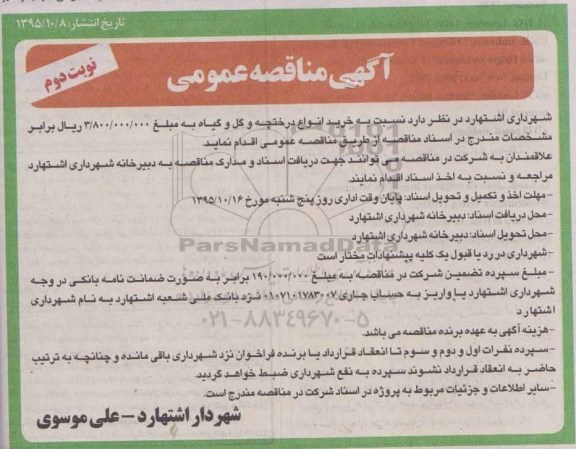 تاریخ انتشار: ۱۳۹۵/۱۰/۸
آگهی مناقصه عمومی
نوبت دوم
شهرداری اشتهارد در نظر دارد نسبت به خرید انواع درختچه و گل و گیاه به مبلغ ۳/۸۰۰/۰۰۰/۰۰۰ ریال برابر
مشخصات مندرج در اسناد مناقصه از طریق مناقصه عمومی اقدام نماید.
علاقمندان به شرکت در مناقصه می توانند جهت دریافت اسناد و مدارک مناقصه به دبیرخانه شهرداری اشتهارد
مراجعه و نسبت به اخذ اسناد اقدام نمایند.
-مهلت اخذ و تکمیل و تحویل اسناد: پایان وقت اداری روز پنج شنبه مورخ ۱۳۹۵/۱۰/۱۶
-محل دریافت اسناد: دبیرخانه شهرداری اشتهارد
-محل تحویل اسناد: دبیرخانه شهرداری اشتهارد
-شهرداری در رد یا قبول یک کلیه پیشنهادات مختار است
ParsNamadData
-مبلغ سپرده تضمین شرکت در مناقصه به مبلغ ۱۹۰/۰۰۰/۰۰۰ برابر به صورت ضمانت نامه بانکی در وجه
شهرداری اشتهارد یا واریز به حساب جاری ۰۱۰۷۱۰۱۷۸۳۰۰۷ نزد بانک ملی شعبه اشتهارد به نام شهرداری
اشتهارد
۰۲۱-۸۸۳۴۹۶۷۰-۵
-هزینه آگهی به عهده برنده مناقصه می باشد.
-سپرده نفرات اول و دوم و سوم تا انعقاد قرارداد با برنده فراخوان نزد شهرداری باقی مانده و چنانچه به ترتیب
حاضر به انعقاد قرارداد نشوند سپرده به نفع شهرداری ضبط خواهد گردید.
-سایر اطلاعات و جزئیات مربوط به پروژه در اسناد شرکت در مناقصه مندرج است.
شهردار اشتهارد - علی موسوی